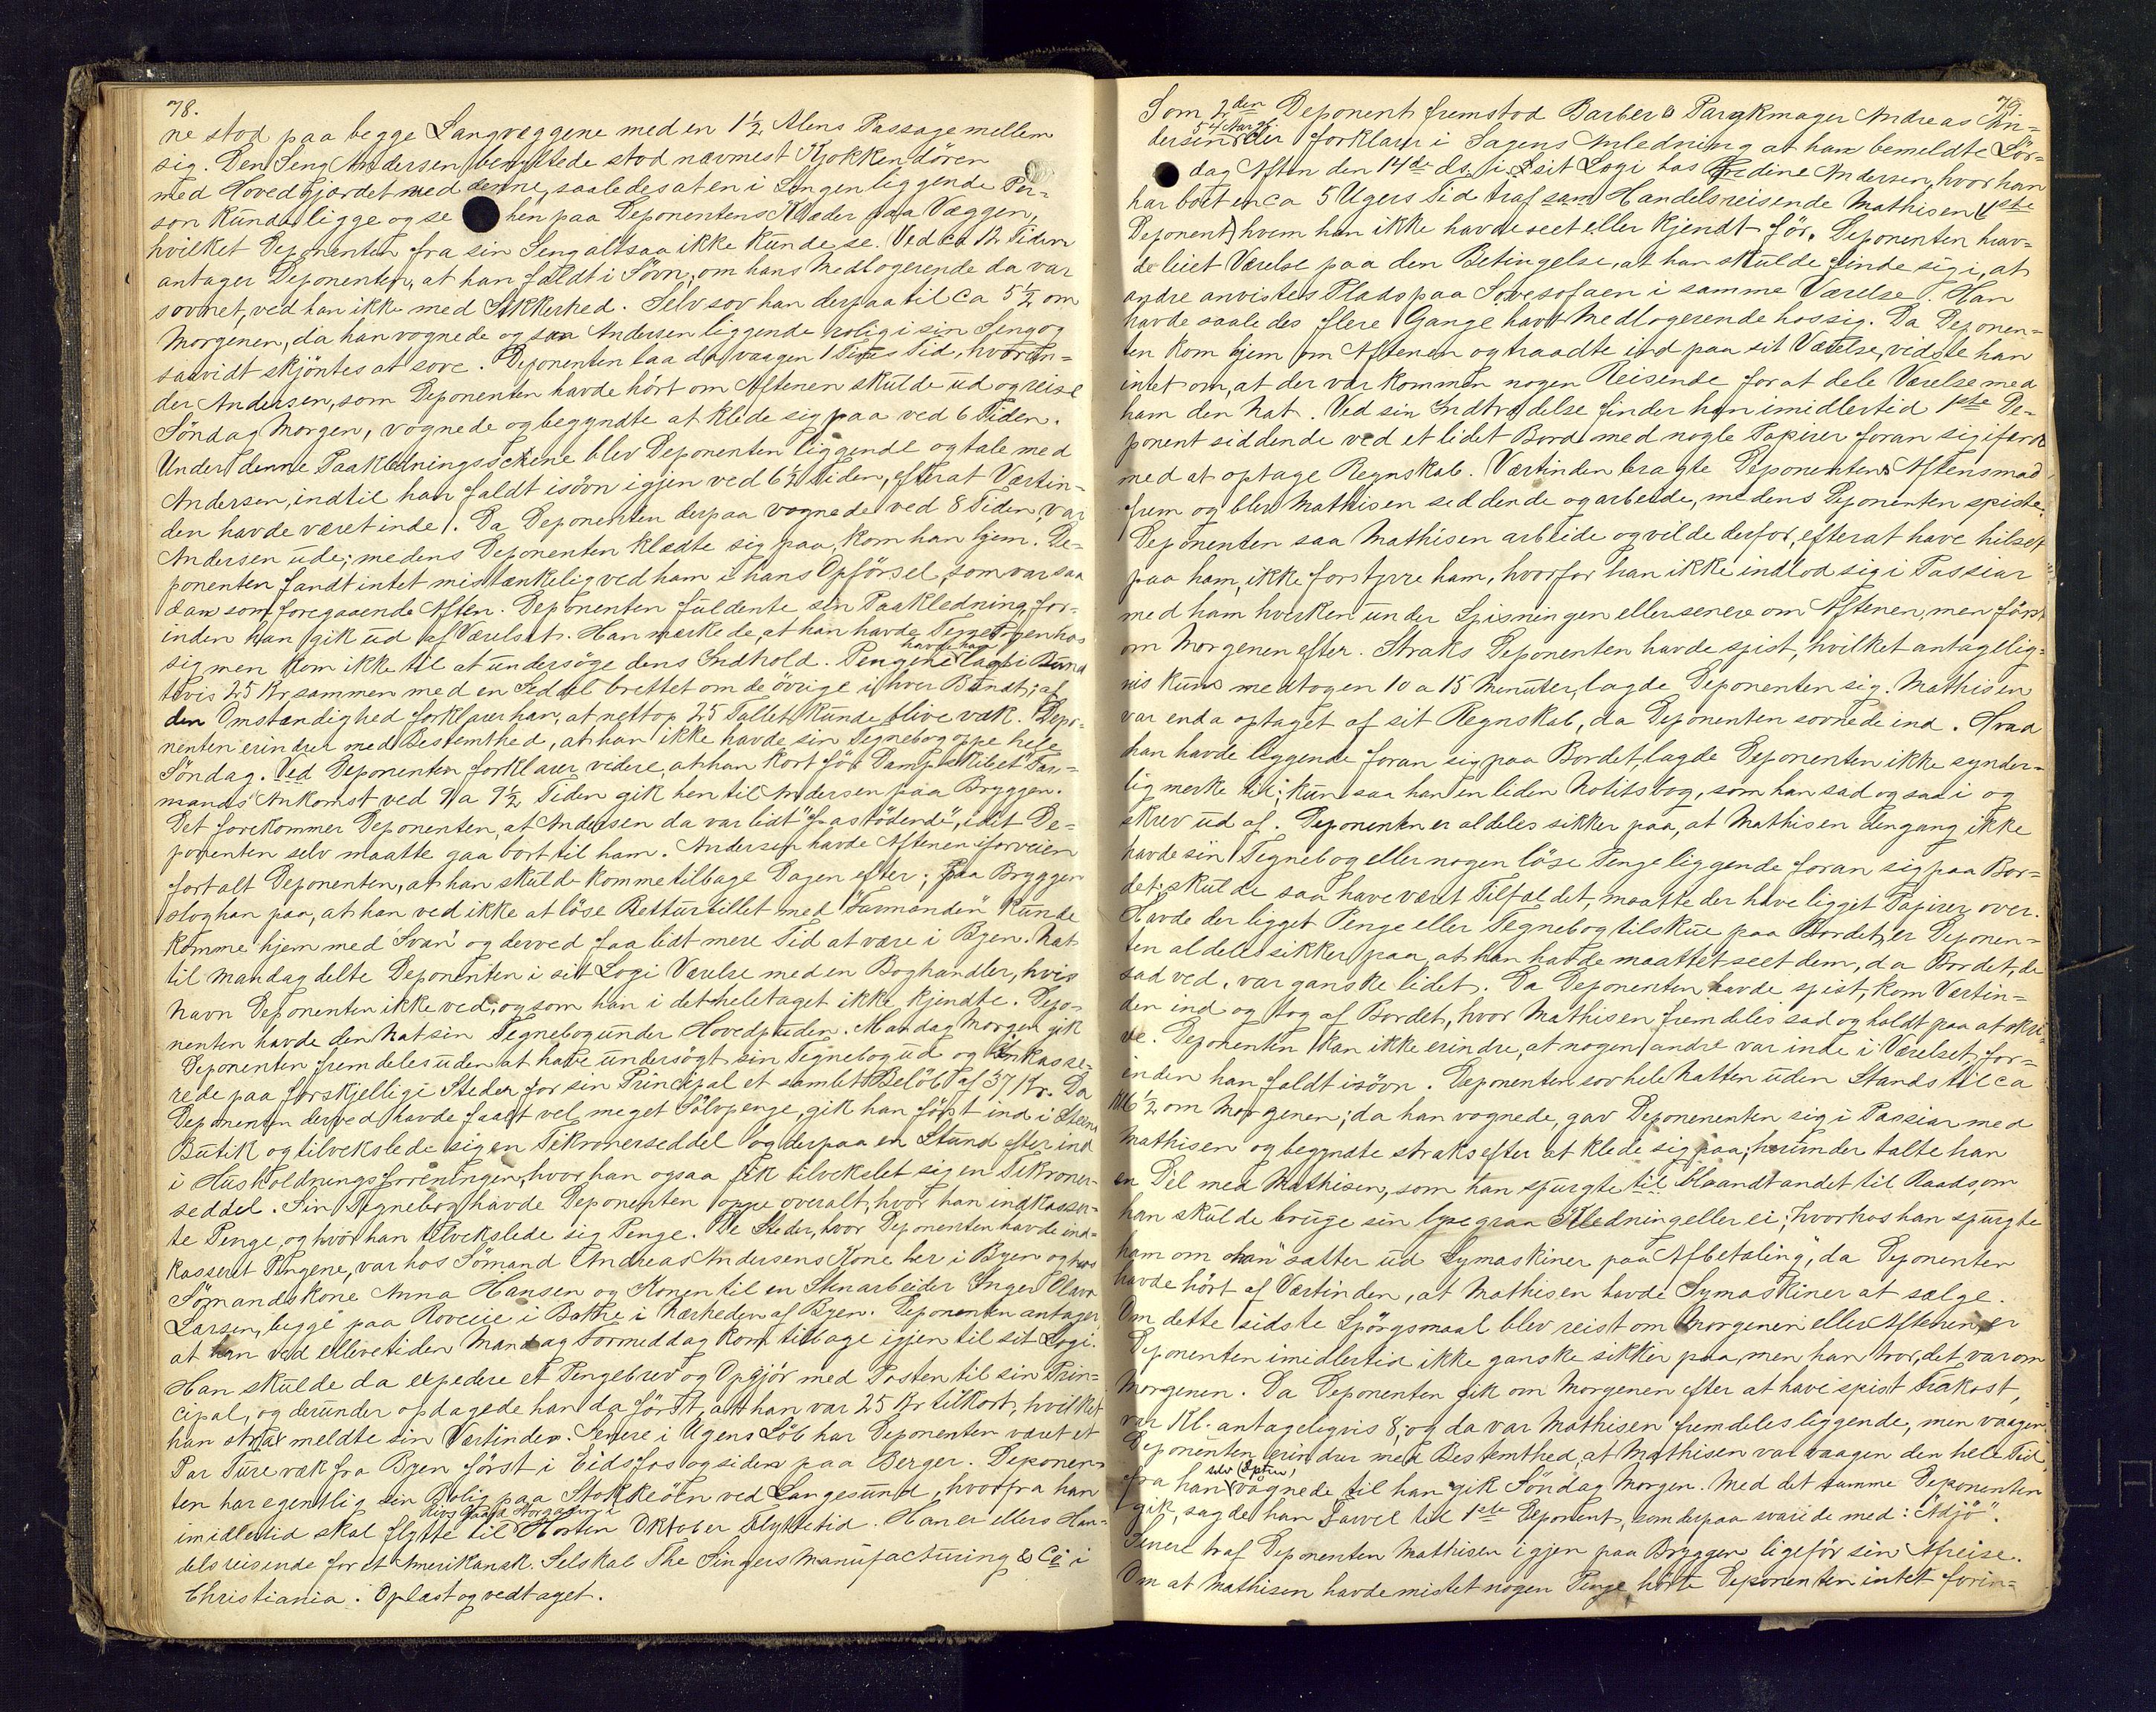 78.
ne stod paa begge Langvæggene med en 1½ Alens Passage mellem
sig. Den Seng Andersen benyttede stod nærmest Kjøkkendören
med Hovedgjærdet med denne, saaledes at en i Sengen liggende Per=
son kunde ligge og se hen paa Deponentens Klæder paa Væggen,
hvilket Deponenten fra sin Seng altsaa ikke kunde se. Ved ca 12 Tiden
antager Deponenten, at han faldt i Sövn; om hans Medlogerende da var
sovnet, ved han ikke med Sikkerhed. Selv sov han derpaa til ca 5½ om
Morgenen, da han vognede og saa Andersen liggende rolig i sin Seng og
saavidt skjöntes at sove. Deponenten laa da vaagen 1 Times Tid, hvorun=
der Andersen, som Deponenten havde hört om Aftenen skulde ud og reise
Söndag Morgen, vognede og begyndte at klede sig paa ved 6 Tiden.
Under denne Paakledningsscene blev Deponenten liggende og tale med
Andersen, indtil han faldt isövn igjen ved 6½ Tiden, efterat Værtin=
den havde været inde. Da Deponenten derpaa vognede ved 8 Tiden, var
Andersen ude; medens Deponenten klædte sig paa, kom han hjem. De=
ponenten fandt intet mistænkelig ved ham i hans Opförsel, som var saa
dan som foregaaende Aften. Deponenten fuldente sin Paakledning for=
inden han gik ud af Værelset. Han mærkede, at han havde Tegnebogen hos
sig men kom ikke til at undersöge dens Indhold. Pengene havde han lagt i Bund
tevis 25 Kr sammen med en Seddel brettet om de övrige i hver Bundt; af
den Omstændighed forklarer han, at nettop 25 Tallet kunde blive væk. Depo=
nenten erindrer med Bestemthed, at han ikke havde sin Tegnebog oppe hele
Söndag. Ved Deponenten forklarer videre, at han kort för Dampskibet "Far=
mands" Ankomst ved 9 a 9½ Tiden gik hen til Andersen paa Bryggen.
Det forekommer Deponenten, at Andersen da var lidt "frastödende", idet De=
ponenten selv maatte gaa bort til ham. Andersen havde Aftenen iforveien
fortalt Deponenten, at han skulde komme tilbage Dagen efter; paa Bryggen
slog han paa, at han ved ikke at löse Returbillet med "Farmanden" kunde
komme hjem med "Svan" og derved faa lidt mere Tid at være i Byen. Nat
til Mandag delte Deponenten i sit Logi Værelse med en Boghandler, hvis
Navn Deponenten ikke ved, og som han i det hele taget ikke kjendte. Depo=
nenten havde den Nat sin Tegnebog under Hovedpuden. Mandag Morgen gik
Deponenten fremdeles uden at have undersögt sin Tegnebog ud og inkasse=
rede paa forskjellige Steder for sin Principal et samlet Belöb af 37 Kr. Da
Deponenten derved havde faaet vel meget Sölvpenge, gik han först ind i Steens
Butik og tilvekslede sig en Tikronerseddel og derpaa en Stund efter ind
i Husholdningsforeningen, hvor han ogsaa fik tilvekslet sig en Tikroner=
seddel. Sin Tegnebog havde Deponenten oppe overalt, hvor han indkasser=
te Penge, og hvor han tilvekslede sig Penge. De Steder, hvor Deponenten havde ind=
kasseret Pengene, var hos Sömand Andreas Andersens Kone her i Byen og hos
Sömandskone Anna Hansen og Konen til en Stenarbeider Inger Olava
Larsen, begge paa Roveiie i Bothne i Nærheden af Byen. Deponenten antager,
at han ved ellevetiden Mandag Formeddag kom tilbage igjen til sit Logi.
Han skulde da expedere et Pengebrev og Opgjör med Posten til sin Prin=
cipal, og derunder opdagede han da förstt, at han var 25 Kr tilkort, hvilket
han strax meldte sin Vertinde. Senere i Ugens Löb har Deponenten været et
Par Ture væk fra Byen först i Eidsfos og siden paa Berger. Deponen=
ten har egentlig sin Bolig paa Stokkeöen ved Langesund, hvorfra han
imidlertid skal flytte til Horten Oktober Flyttetid. Han er ellers Han=
delsreisende for et Amerikansk Selskab The Singers Manufacturing & Co i
Christiania. Oplæst og vedtaget.
79.
Som 2den Deponent fremstod Barber & Parykmager Andreas An=
dersen 54 Aar gl der forklarer i Sagens Anledning at han bemeldte Lör=
dag Aften den 14de ds. i sit Logi hos Fredine Andersen, hvor han
har boet en ca 5 Ugers Tid traf sam Handelsreisende Mathisen (1ste
Deponent) hvem han ikke havde seet eller kjendt för. Deponenten hav=
de leiet Værelse paa den Betingelse, at han skulde finde sig i, at
andre anvistes Plads paa Sovesofaen i samme Værelse. Han
havde saaledes flere Gange havt Medlogerende hos sig. Da Deponen=
ten kom hjem om Aftenen og traadte ind paa sit Værelse, vidste han
intet om, at der var kommen nogen Reisende for at dele Værelse med
ham den Nat. Ved sin Indtrædelse finder han imidlertid 1ste De=
ponent siddende ved et lidet Bord med nogle Papirer foran sig ifærd
med at optage Regnskab. Værtinden bragte Deponentens Aftensmad
frem og blev Mathisen siddende og arbeide, medens Deponenten spiste.
Deponenten saa Mathisen arbeide og vilde derfor, efterat have hilset
paa ham, ikke forstyrre ham, hvorfor han ikke indlod sig i Passiar
med ham hverken under Spisningen eller senere om Aftenen, men först
om Morgenen efter. Straks Deponenten havde spist, hvilket antagelig=
vis kuns medtog en 10 a 15 Minuter, lagde Deponenten sig. Mathisen
var enda optaget af sit Regnskab, da Deponenten sovnede ind. Hvad
han havde liggende foran sig paa Bordet, lagde Deponenten ikke synder=
lig merke til; kun saa han en liden Notitsbog, som han sad og saa i og
skrev ud af. Deponenten er aldeles sikker paa, at Mathisen dengang ikke
havde sin Tegnebog eller nogen löse Penge liggende foran sig paa Bor=
det; skulde saa have været Tilfaldet, maatte der have ligget Papirer over.
Havde der ligget Penge eller Tegnebog tilskue paa Bordet, er Deponen=
ten aldeles sikker paa, at han havde maattet seet dem, da Bordet, de
sad ved, var ganske lidet. Da Deponenten havde spist, kom Værtin=
den ind og tog af Bordet, hvor Mathisen fremdeles sad og holdt paa at skri=
ve. Deponenten kan ikke erindre, at nogen andre var inde i Værelset, for=
inden han faldt isövn. Deponenten sov hele Natten uden Stands til ca
Kl 6½ om Morgenen; da han vognede, gav Deponenenten sig i Passiar med
Mathisen og begyndte straks efter at klede sig paa; herunder talte han
en Del med Mathisen, som han spurgte til blaandt andet til Raads, om
han skulde bruge sin lysegraa Kledning eller ei; hvorhos han spurgte
ham om "han satter ud Symaskiner paa Afbetaling", da Deponenten
havde hört af Værtinden, at Mathisen havde Symaskiner at sælge.
Om dette sidste Spörgsmaal blev reist om Morgenen eller Aftenen, er
Deponenten imidlertid ikke ganske sikker paa, men han tror, det var om
Morgenen. Da Deponenten gik om Morgenen efter at have spist Frokost,
var Kl. antageligvis 8, og da var Mathisen fremdeles liggende, men vaagen.
Deponenten erindrer med Bestemthed, at Mathisen var vaagen den hele Tid,
fra han selv (Dptn) vognede til han gik Söndag Morgen. Med det samme Deponenten
gik, sagde han Farvel til 1ste Deponent, som derpaa svarede med: "Adjö".
Senere traf Deponenten Mathisen igjen paa Bryggen ligeför sin Afreise.
Om at Mathisen havde mistet nogen Penge, hörte Deponenten intet forin=